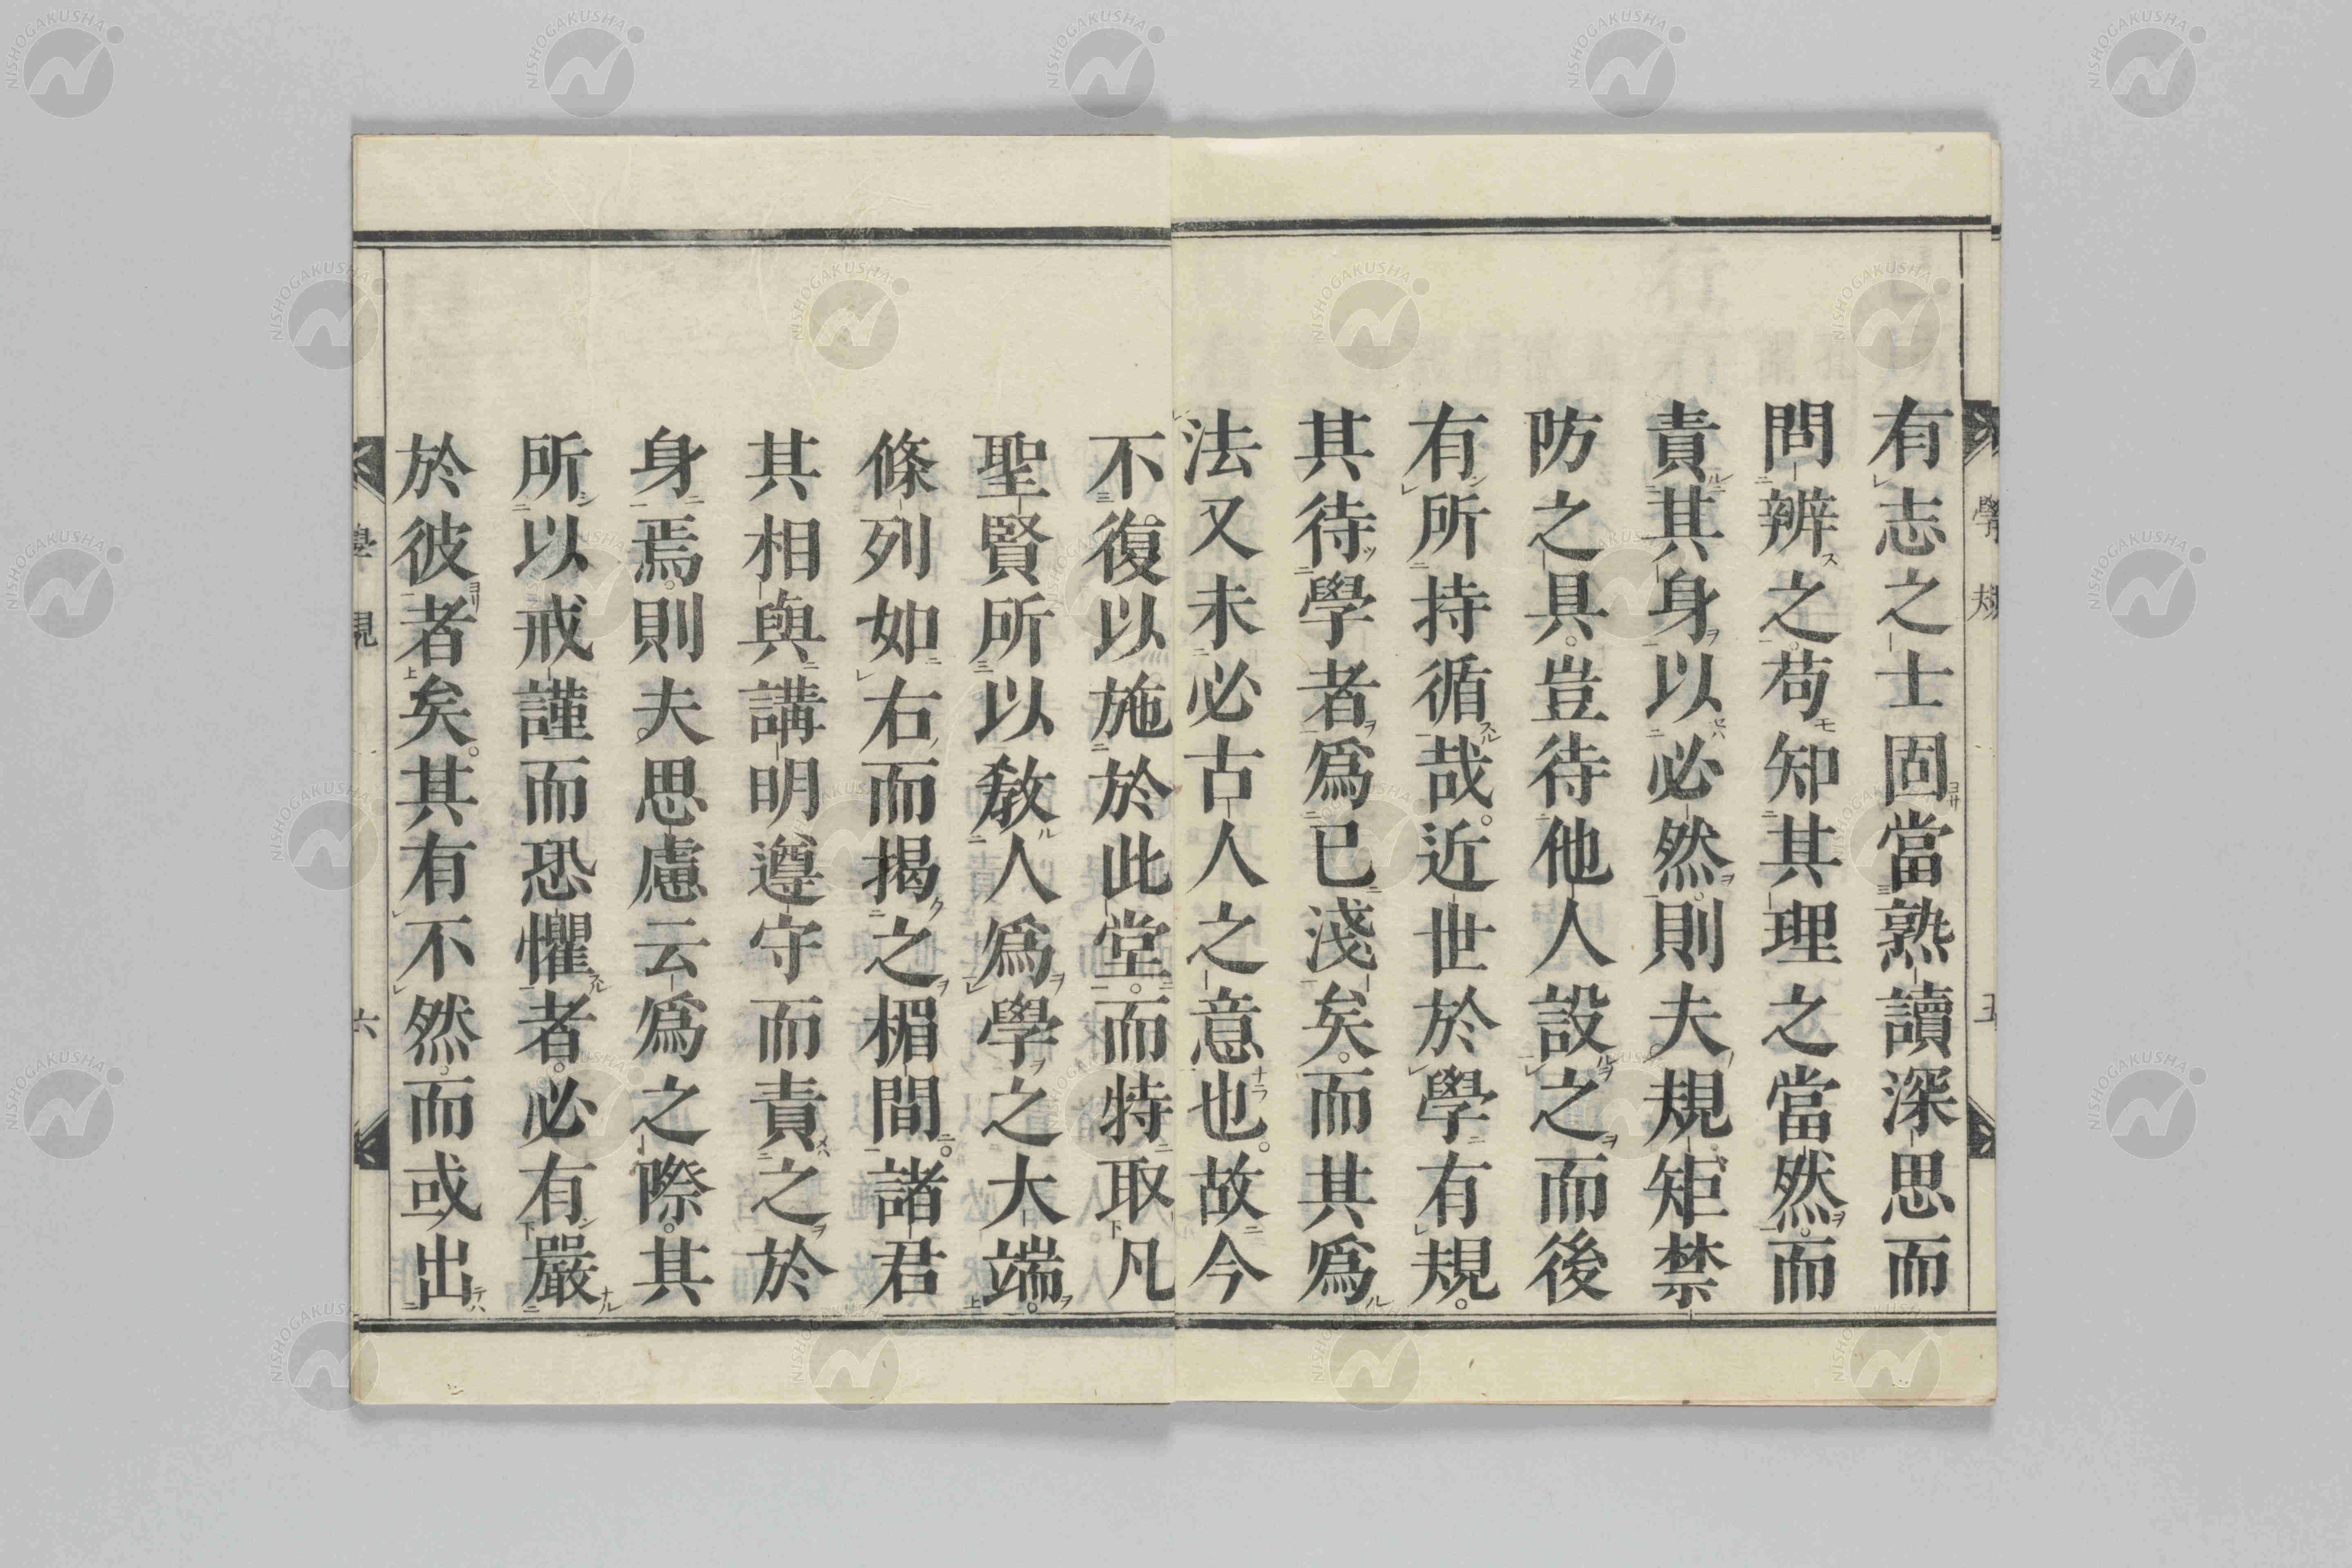 有志之士固當熟讀深思而
問辨之。苟知其理之當然。而
責其身以必然。則夫規矩禁
防之具。豈待他人設之而後
有所持循哉。近世於學有規。
其待學者爲已淺矣。而其爲
法又未必古人之意也。故今
不復以施於此堂。而特取凡
聖賢所以敎人爲學之大端。
條列如右而揭之楣間。諸君
其相與講明遵守而責之於
身焉。則夫思慮云爲之際。其
所以戒謹而恐懼者。必有嚴
於彼者矣。其有不然。而或出
學規
五
學規
六
NISHOGAKUSHA